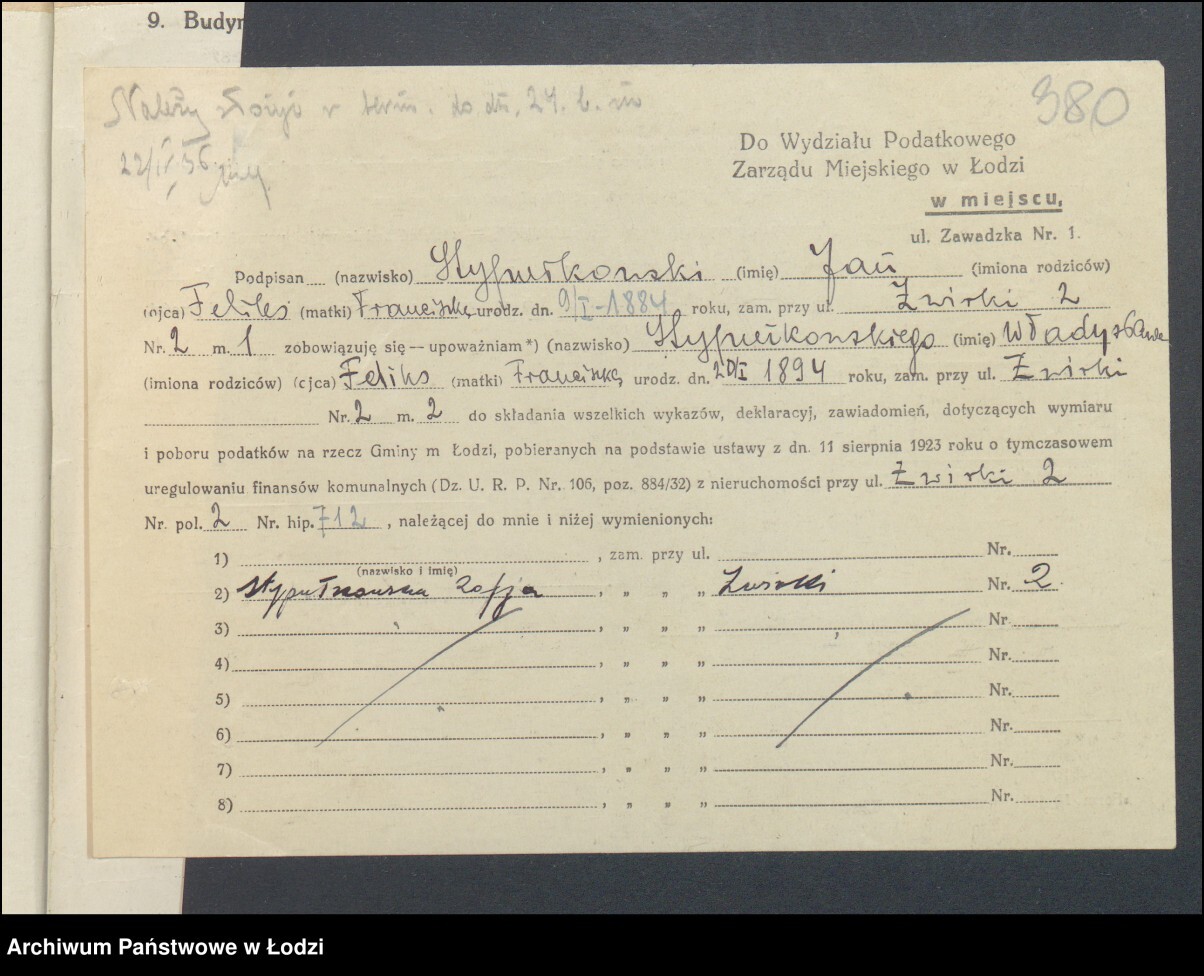 9. Budyn
Należy złożyć w term. do dn. 24. b. m
380
22/IV 36.
Do Wydziału Podatkowego
Zarządu Miejskiego w Łodzi
w miejscu,
ul. Zawadzka Nr. 1.
Podpisan (nazwisko) Stypułkowski (imię) Jan (imiona rodziców)
(ojca) Feliks (matki) Franciszka urodz. dn. 9/I-1884 roku, zam. przy ul. Żwirki 2
Nr. 2 m. 1 zobowiązuję się — upoważniam *) (nazwisko) Stypułkowskiego (imię) Władysława
(imiona rodziców) (ojca) Feliks (matki) Franciszka urodz. dn. 20/I 1894 roku, zam. przy ul. Żwirki
Nr. 2 m. 2 do składania wszelkich wykazów, deklaracyj, zawiadomień, dotyczących wymiaru
i poboru podatków na rzecz Gminy m Łodzi, pobieranych na podstawie ustawy z dn. 11 sierpnia 1923 roku o tymczasowem
uregulowaniu finansów komunalnych (Dz. U. R. P. Nr. 106, poz. 884/32) z nieruchomości przy ul. Żwirki 2
Nr. pol. 2 Nr. hip. 712, należącej do mnie i niżej wymienionych:
1) , zam. przy ul. Nr.
(nazwisko i imię)
2) Stypułkowska Zofja , „ „ „ Żwirki Nr. 2
3) , „ „ „ Nr
4) , „ „ „ Nr.
5) , „ „ „ Nr.
6) , „ „ „ Nr.
7) , „ „ „ Nr.
8) , „ „ „ Nr.
Archiwum Państwowe w Łodzi